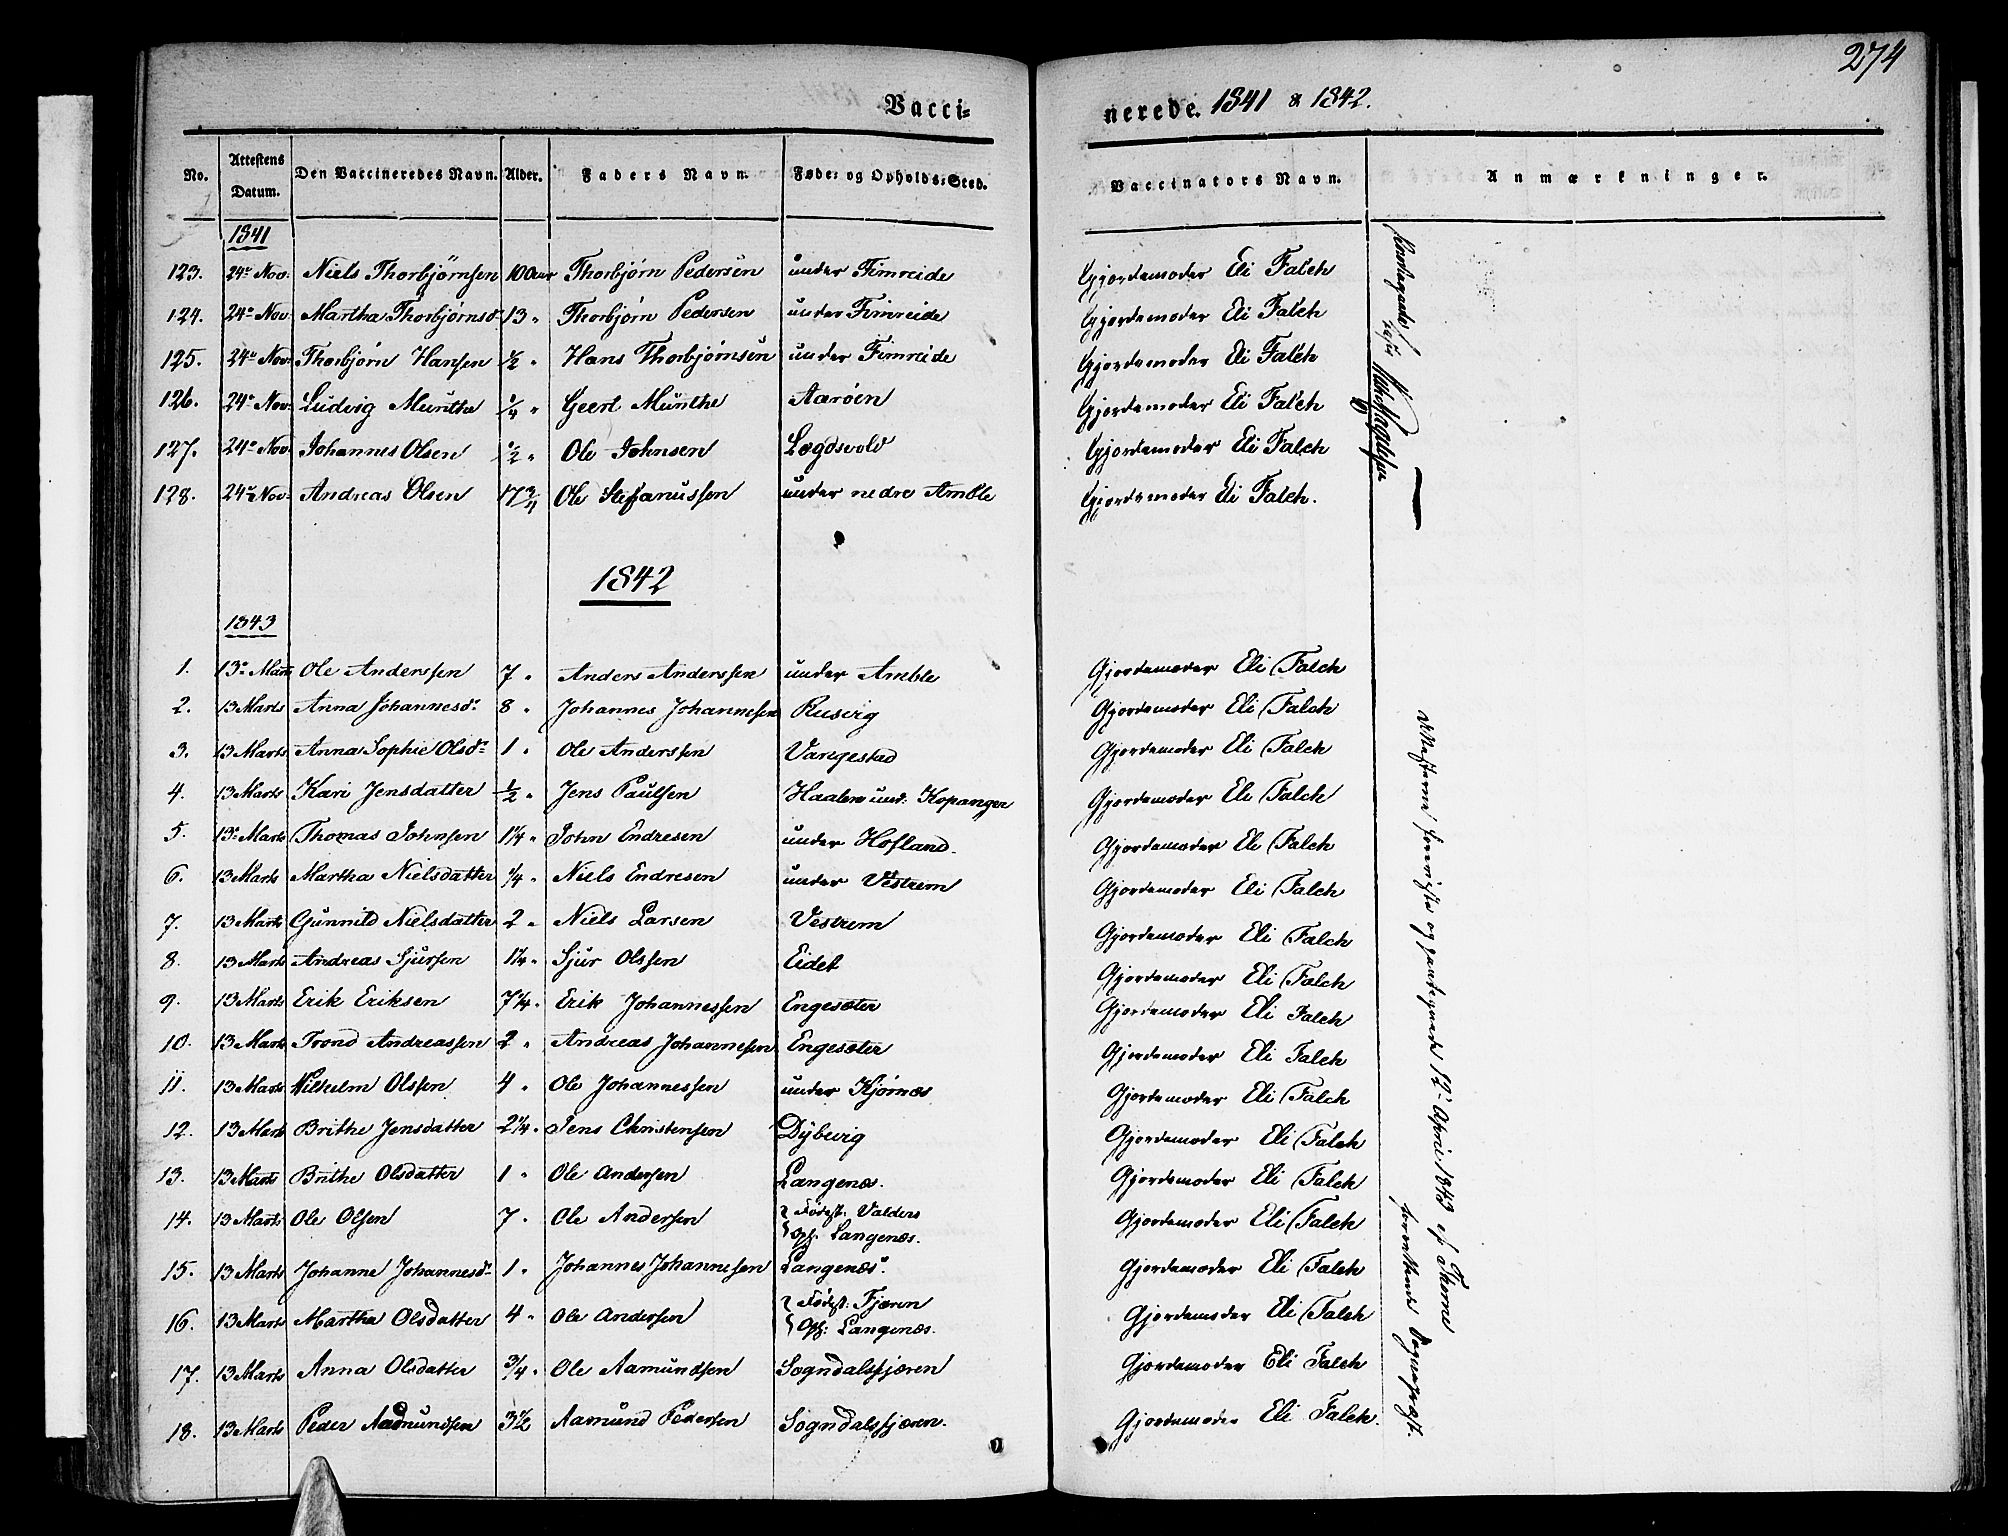 274
Vaccinerede. 1841 & 1842.
No. Attestens Datum. Den Vaccineredes Navn. Alder. Faders Navn. Føde- og Opholds-Sted. Vaccinators Navn. Anmærkninger.
1841
123. 24e Nov. Niels Thorbjørnsen 10 Aar Thorbjørn Pedersen under Fimreide Gjordemoder Eli Falch
124. 24e Nov. Martha Thorbjørnsd. 13 " Thorbjørn Pedersen under Fimreide Gjordemoder Eli Falch
125. 24e Nov. Thorbjørn Hansen 1/2 " Hans Thorbjørnsen under Fimreide Gjordemoder Eli Falch
126. 24e Nov. Ludvig Munthe 1/4 " Geert Munthe Aarøen Gjordemoder Eli Falch
127. 24e Nov. Johannes Olsen 1/2 " Ole Johnsen Lægdsvold Gjordemoder Eli Falch
128. 24e Nov. Andreas Olsen 17 3/4 Ole Stefanussen under nedre Amble Gjordemoder Eli Falch.
1842
1843
1. 13e Marts Ole Anderssen 7 " Anders Anderssen under Amble Gjordemoder Eli Falch
2. 13 Marts Anna Johannesdr 8 " Johannes Johannessen Rusvig Gjordemoder Eli Falch
3. 13 Marts Anna Sophie Olsdr 1 " Ole Anderssen Vangestad Gjordemoder Eli Falch
4. 13 Marts Kari Jensdatter 1/2 " Jens Paulsen und: Kopanger Gjordemoder Eli Falch
5. 13 Marts Thomas Johnsen 1 1/4 " John Endresen under Hofland. Gjordemoder Eli Falch
6. 13 Marts Martha Nielsdatter 1/4 " Niels Endresen under Vestrem Gjordemoder Eli Falch
7. 13 Marts Gunnild Nielsdatter 2 " Niels Larsen Vestrem Gjordemoder Eli Falch
8. 13 Marts Andreas Sjursen 1 1/4 " Sjur Olssen Eidet Gjordemoder Eli Falch
9. 13 Marts Erik Eriksen 7 1/4 " Erik Johannessen Engesæter Gjordemoder Eli Falch
10. 13 Marts Trond Andreassen 2 " Andreas Johannesen Engesæter Gjordemoder Eli Falch
11. 13 Marts Wilhelm Olssen 4 " Ole Johannessen under Kjørnæs Gjordemoder Eli Falch
12. 13 Marts Brithe Jensdatter 2 1/4 " Jens Christensen Dybvig Gjordemoder Eli Falch
13. 13 Marts Brithe Olsdatter 1 " Ole Andersen Langenæs. Gjordemoder Eli Falch
14. 13 Marts Ole Olsen 7 " Ole Andersen Fødest: Valders Oph: Langenæs. Gjordemoder Eli Falch
15. 13 Marts Johanne Johannesdr 1 " Johannes Johannesen Langenæs. Gjordemoder Eli Falch
16. 13 Marts Martha Olsdatter 4 " Ole Andersen Fødest: Fjæren Oph: Langenæs. Gjordemoder Eli Falch
17. 13 Marts Anna Olsdatter 3/4 " Ole Aamundsen Sogndalsfjæren Gjordemoder Eli Falch
18. 13 Marts Peder Aamundsen 3 1/2 Aamund Pedersen Sogndalsfjæren. Gjordemoder Eli Falch.
Attesterne foreviste og paategnede 12' April 1843 af Therne
forrettende Sognepræst.